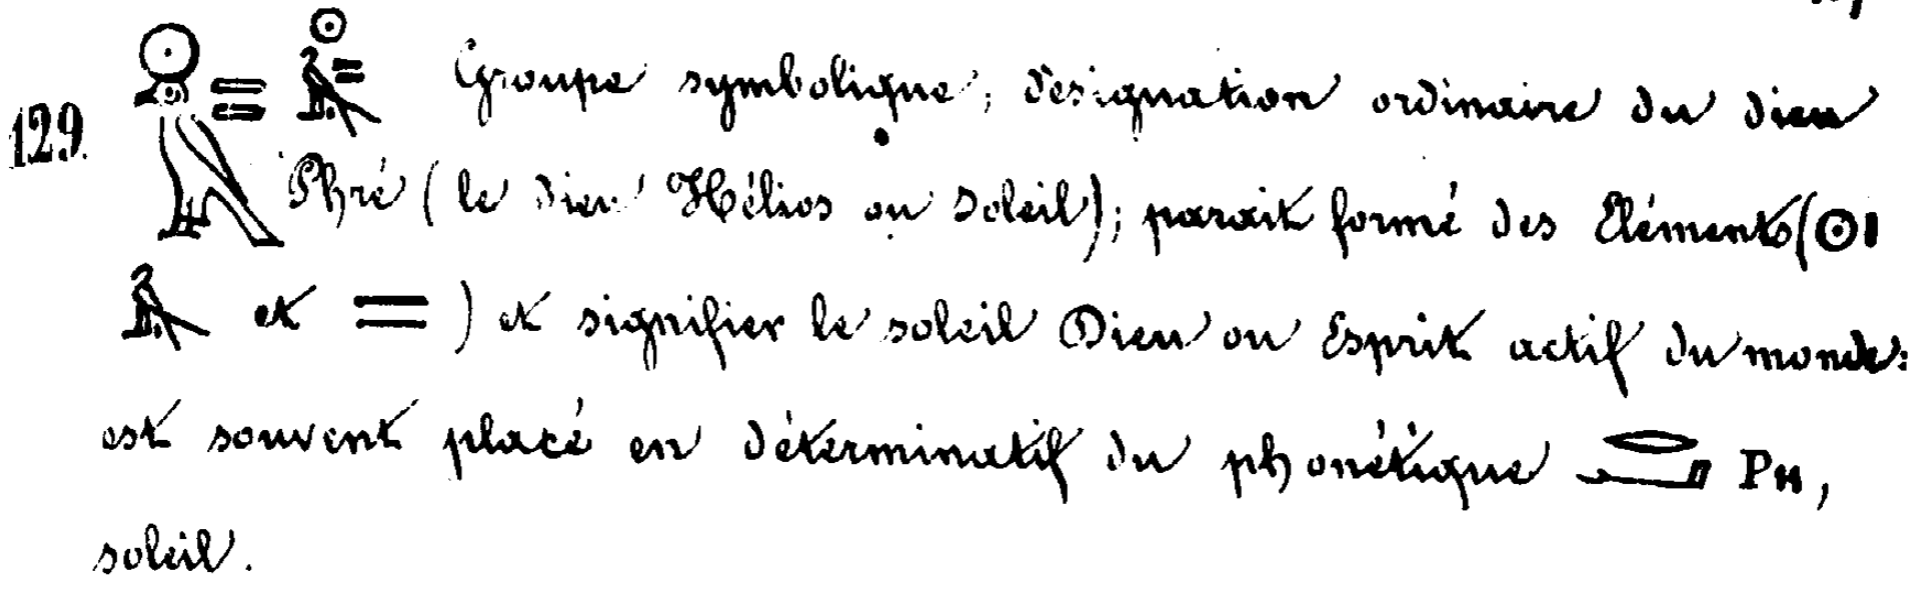 129. 𓇳𓅃= 𓇳𓅃= Groupe symbolique, désignation ordinaire du dieu
Phré (le dieu Hélios ou soleil); parait formé des Eléments (𓇳𓏤
𓅃 et =) et signifier le soleil Dieu ou Esprit actif du monde:
est souvent placé en déterminatif du phonétique 𓂋𓂝 Ρн,
soleil.